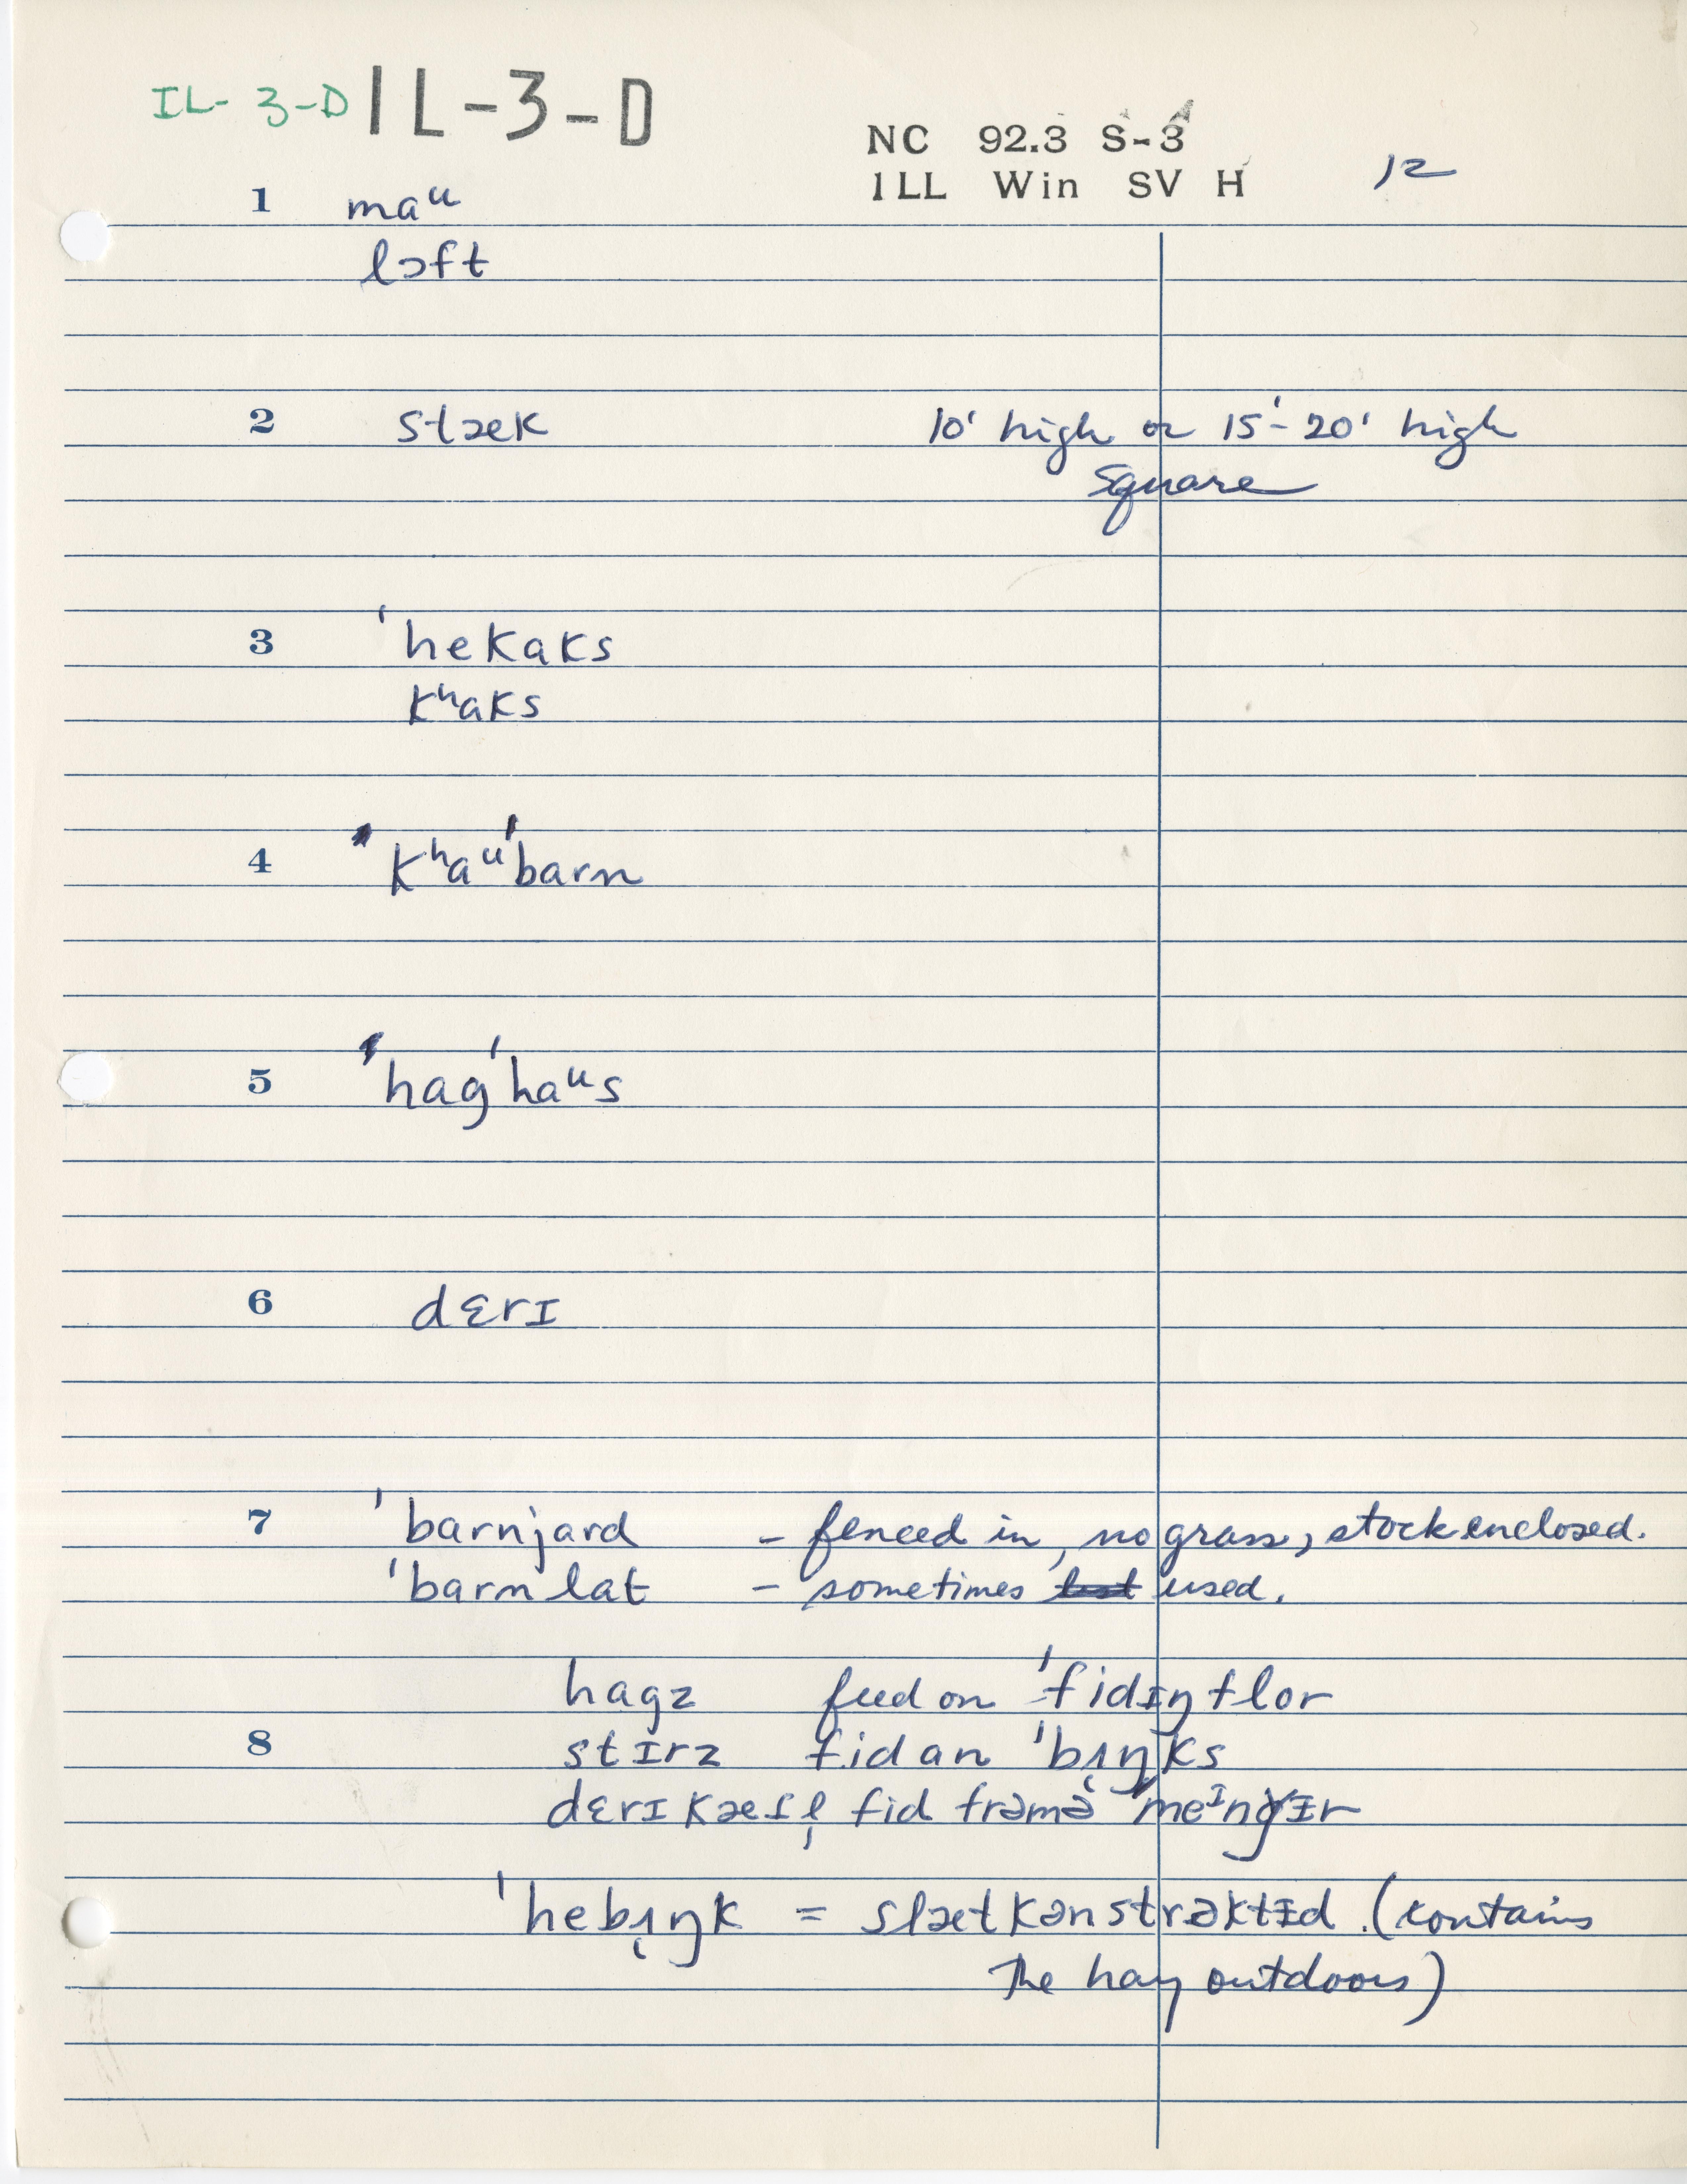 IL-3-D IL-3-D
NC 92.3 S-3
1LL Win SV H 12
1 maᵘ
lɔft
2 stæk 10' high or 15'-20' high
square
3 ˈhekaks
kʰaks
4 kʰaᵘˈbarn
5 hagˈhaᵘs
6 dɛrɪ
7 ˈbarnjard - fenced in, no grass, stock enclosed.
ˈbarnlat - sometimes used.
hagz feed on ˈfidɪŋflor
8 stɪrz fid an ˈbʌŋks
dɛrɪ kætl̩ fid frəmə
ˈhebʌŋk = slætkənstrəktɪd (contains
the hay outdoors)